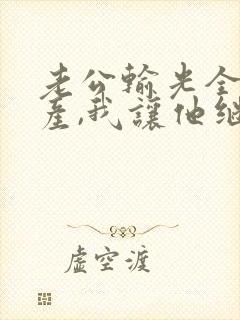 老公输光全
产,我让他继
虚空渡